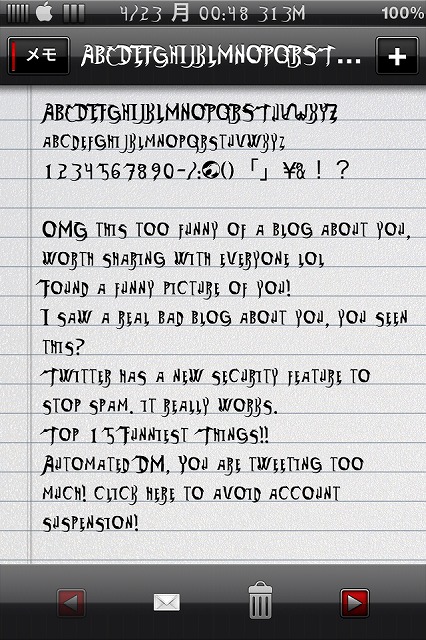 4/23 月 00:48 313M 100%
メモ ABCDEFGHIJKLMNOPQRST... +
ABCDEFGHIJKLMNOPQRSTUVWXYZ
ABCDEFGHIJKLMNOPQRSTUVWXYZ
1234567890-/:()「」¥&!?
OMG THIS TOO FUNNY OF A BLOG ABOUT YOU,
WORTH SHARING WITH EVERYONE LOL
FOUND A FUNNY PICTURE OF YOU!
I SAW A REAL BAD BLOG ABOUT YOU, YOU SEEN
THIS?
TWITTER HAS A NEW SECURITY FEATURE TO
STOP SPAM. IT REALLY WORKS.
TOP 15 FUNNIEST THINGS!!
AUTOMATED DM, YOU ARE TWEETING TOO
MUCH! CLICK HERE TO AVOID ACCOUNT
SUSPENSION!